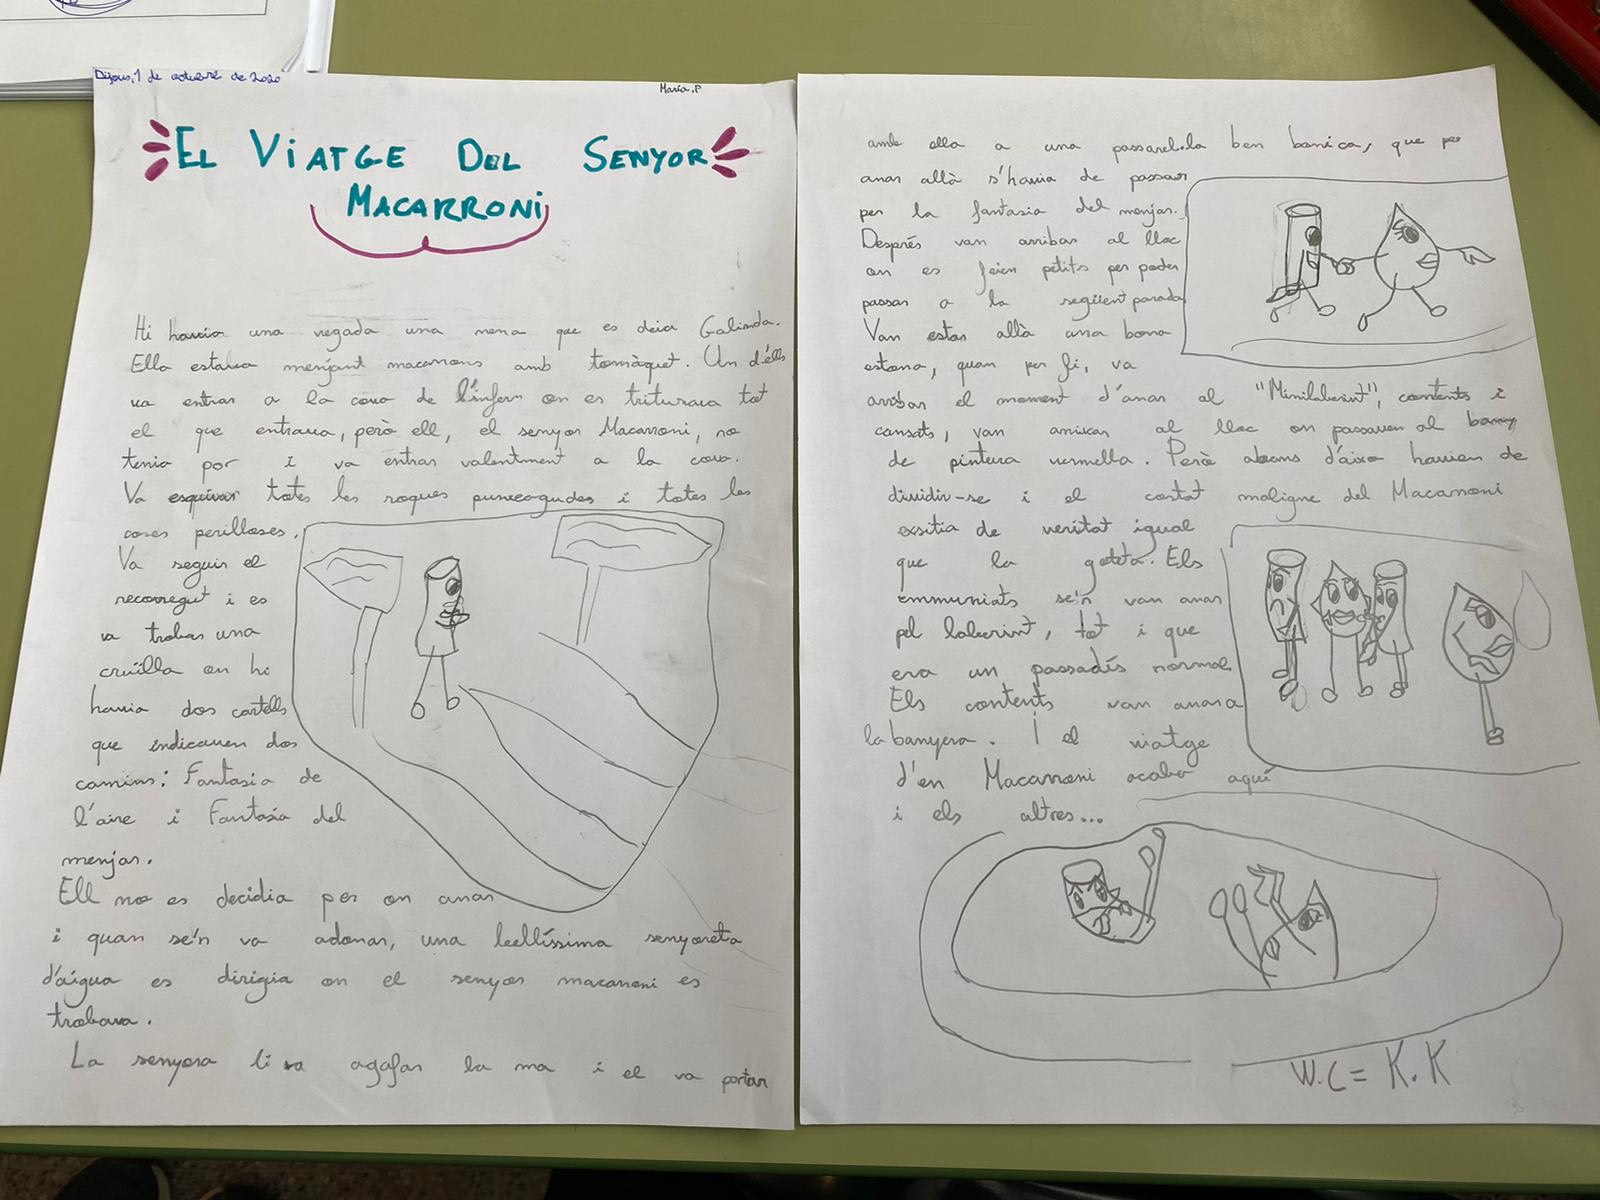 Dijous, 1 de octubre de 2020
María.P
EL VIATGE DEL SENYOR
MACARRONI
Hi havia una vegada una nena que es deia Galinda.
Ella estava menjant macarrons amb tomàquet. Un d'ells
va entrar a la cova de l'infern on es triturava tot
el que entrava, però ell, el senyor Macarroni, no
tenia por i va entrar valentment a la cova.
Va esquivar totes les roques punxegudes i totes les
coses perilloses.
Va seguir el
recorregut i es
va trobar una
cruïlla on hi
havia dos cartells
que indicaven dos
camins: Fantasia de
l'aire i Fantasia del
menjar.
Ell no es decidia per on anar
i quan se'n va adonar, una bellíssima senyoreta
d'aigua es dirigia on el senyor macarroni es
trobava.
La senyora li va agafar la ma i el va portar
amb ella a una passarel.la ben bonica, que per
anar allà s'havia de passar
per la fantasia del menjar.
Després van arribar al lloc
on es feien petits per poder
passar a la següent parada
Van estar allà una bona
estona, quan per fi, va
arribar el moment d'anar al "Minilaberint", contents i
cansats, van arribar al lloc on passaven al
de pintura vermella. Però abans d'això havien de
dividir-se i el costat maligne del Macarroni
exsitia de veritat igual
que la goteta. Els
emmuniats se'n van anar
pel laberint, tot i que
era un passadís normal
Els contents van anar a
la banyera. I el viatge
d'en Macarroni acaba aquí
i els altres...
W.C = K.K